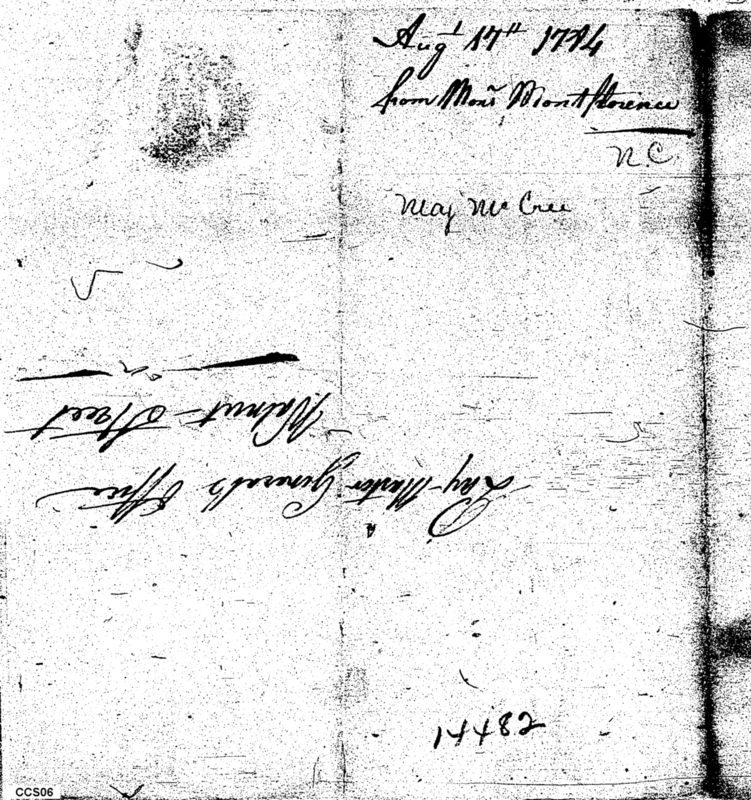 Augt 17th 1784
from Monr Montflorence
N.C.
Maj Mc Cree
Pay-Master General's Office
Walnut-Street
CCS06